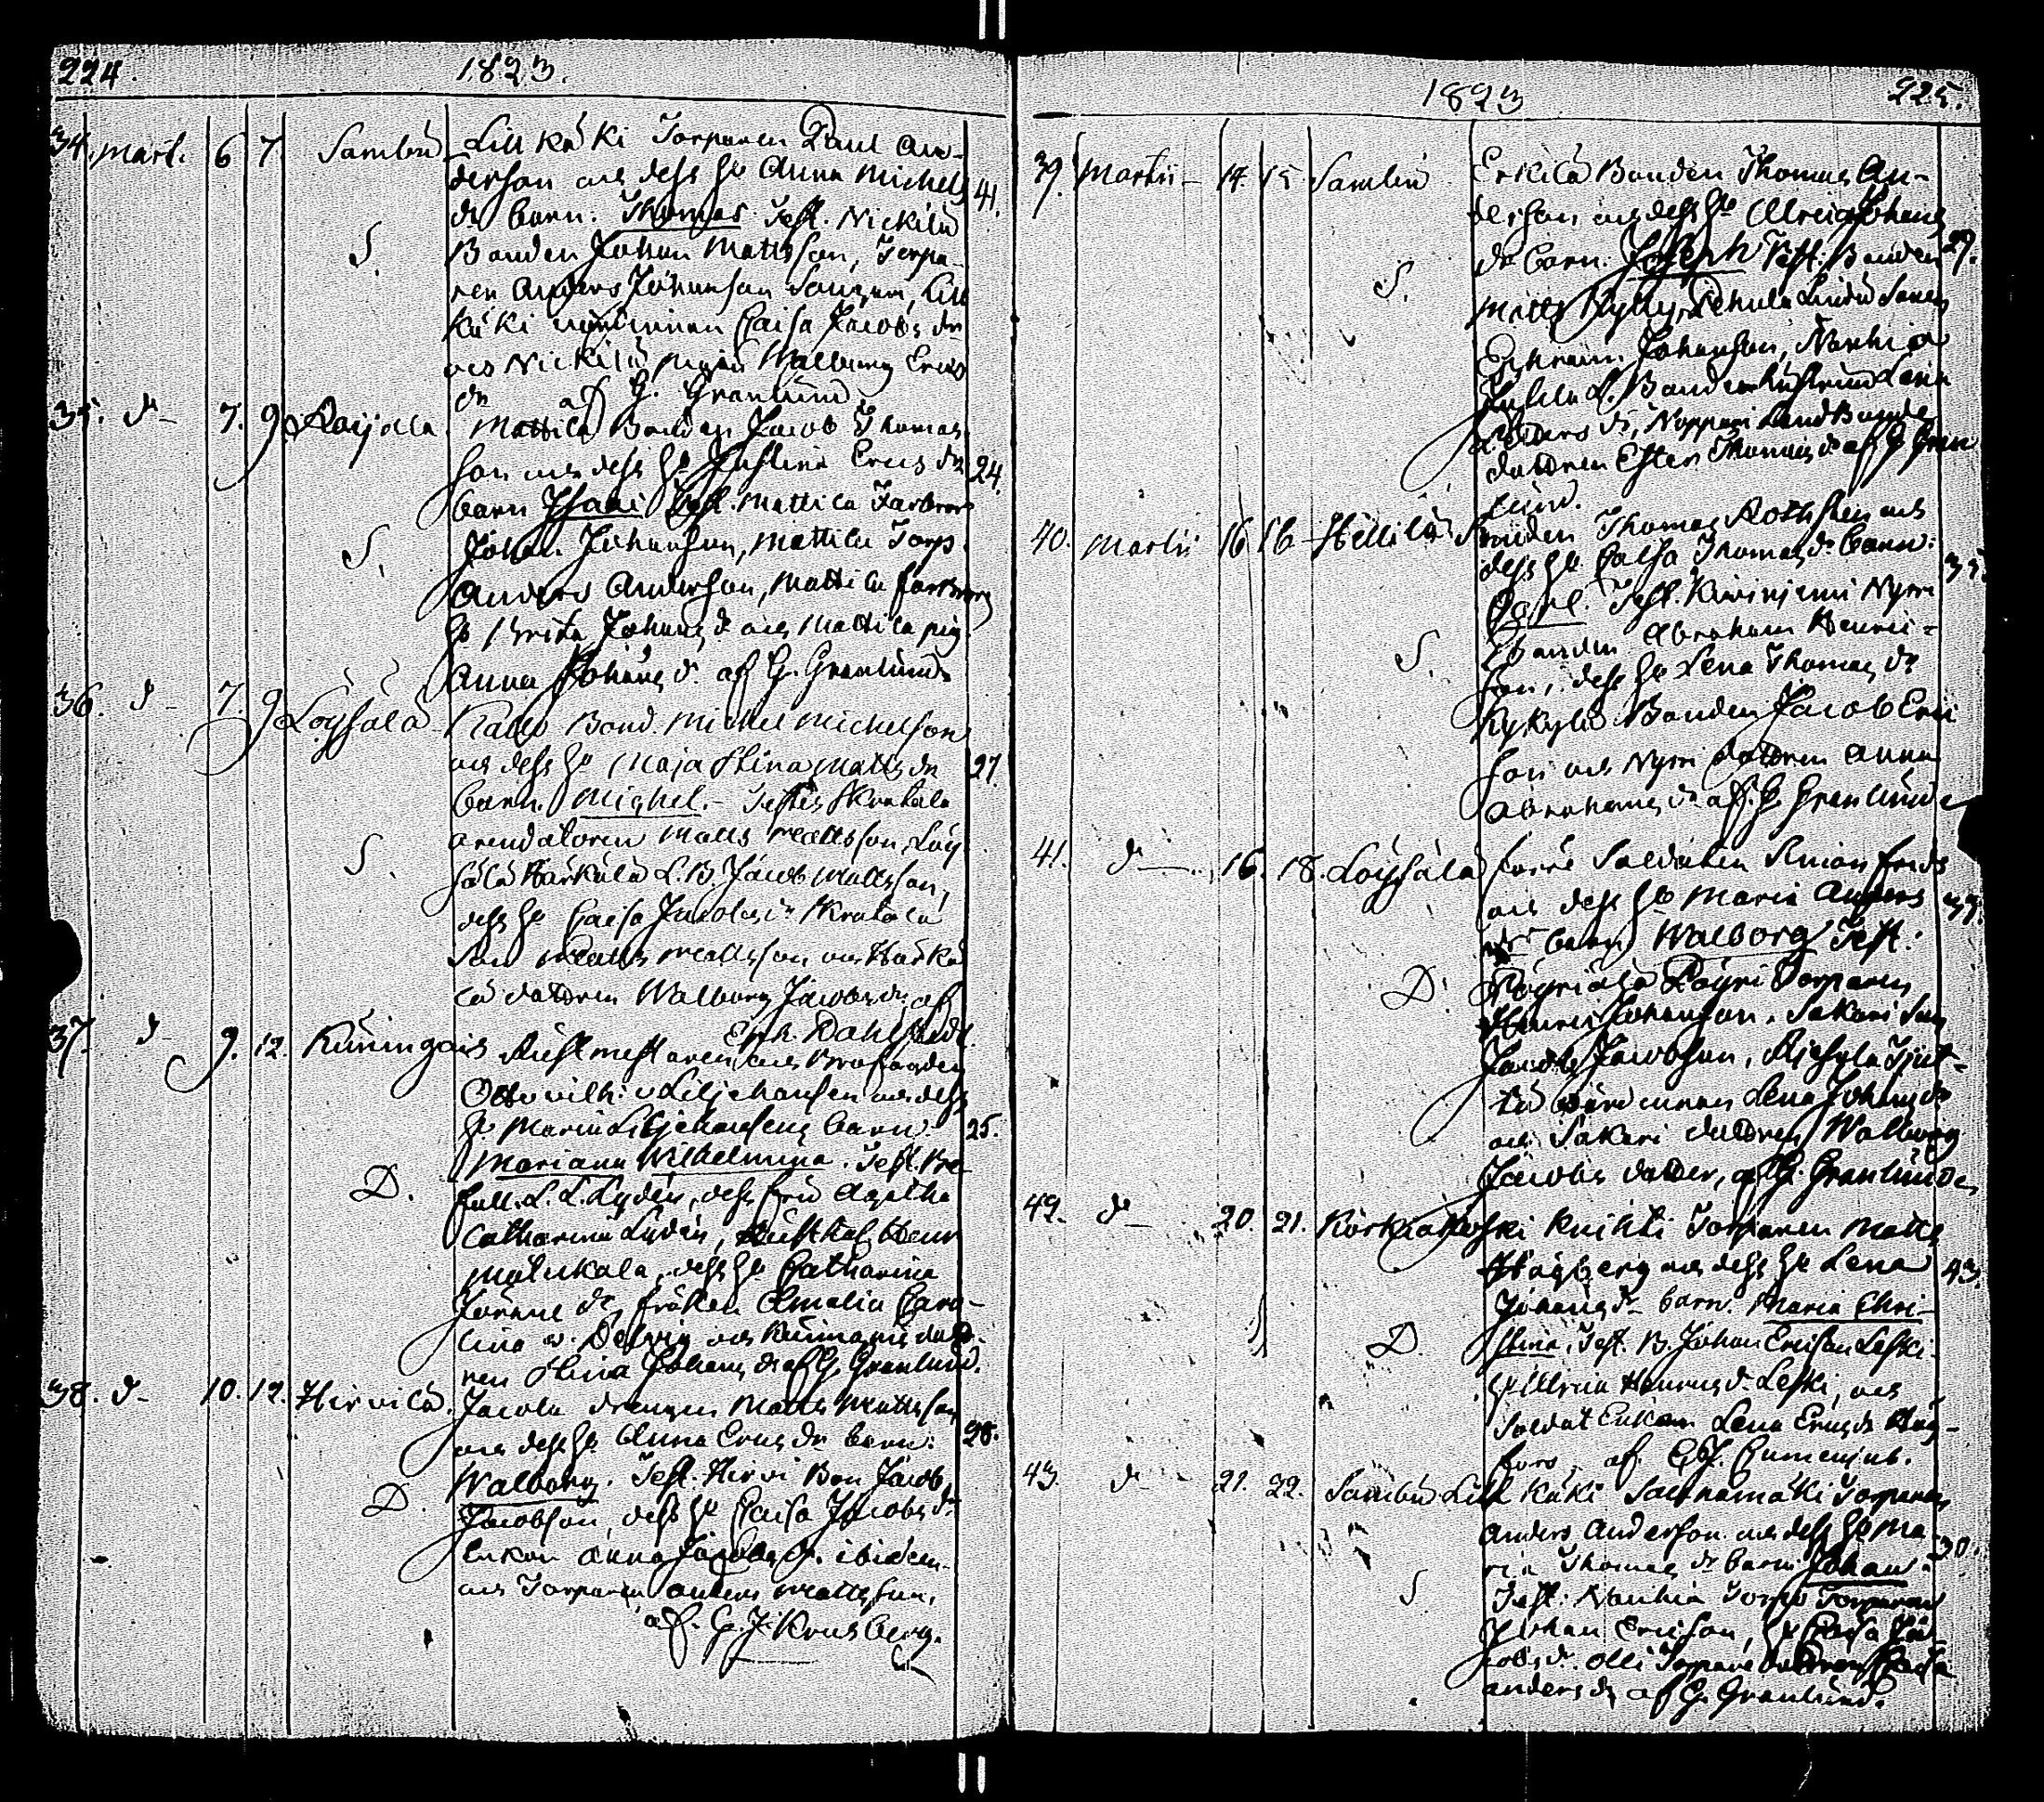 224. 1823.
34. Mart. 6 7. Sambu Lill käki Torparen Paul An-
derson och dess h. Anna Michels 41.
dr barn. Thomas Test. Nickilä
S. Bonden Johan Mattsson, Torpa-
ren Anders Johansson Lill
Käki Caisa Jacobs dr
och Nickilä pigan Walborg Erics
dr af G. Granlund.
35. d- 7. 9 Raijala Mattila Bonden Jacob Thomas
son och dess h. Justina Erics dr 24.
barn Isaac Test. Mattila Farbror
S. Johan Johansson, Mattila Torp.
Anders Anderson, Mattila farbrors
h. Brita Johans d. och Mattila pig.
Anna Johans d. af G. Granlund
36. d- 7. 9 Löysälä Kallo Bond. Michel Michelson
och dess h. Maja Stina Matts dr 27.
barn. Michel. Testes Skratala
arendatoren Matts Mattsson, Löy
S. sälä Härkälä L. B. Jacob Mattsson,
dess h. Caisa Jacobs dr Skratala
Son Matts Mattsson och Härkä
lä dottren Walborg Jacobs dr af
Eph. Dahlstedt.
37. d- 9. 12. Kuningais Rustmästaren
Otto Wilh. v Liljehansen och dess
h. Maria Liljehansens barn. 25.
Mariana Wilhelmina. Test. Be-
D. fall. L. L. Lydén, dess fru Agatha
Catharina Lydén, Rusthål. Henr
Matukala, dess h. Catharina
Jörans dr, fröken Amalia Caro-
lina v. Delwig och Kuningais dott-
ren Stina Johans dr af G. Granlund.
38. d- 10. 12. Hirvilä. Jacola drengen Matts Mattsson
och dess h. Anna Erics dr barn. 28.
Walborg. Test. Hirvi Bon Jacob
D. Jacobson, dess h. Caisa Jacobs dr
Enkan Anna Jacobs dr. ibidem
och Torparen Anders Mattsson,
af. G. J. Krusberg.
1823 225.
39. Martii 14. 15. Sambu Erkilä Bonden Thomas An-
derson och dess h. Ulrica Johans
dr barn. Joseph Test. Bonden 29.
S. Matts
Ephraim Johansson, Nanhia
L. Bonde Lena
Anders dr, Noppari Landbonde
dottren Ester Thomas dr af G Gran
lund.
40. Martii 16 16 Hellilä Bonden Thomas Rothsten och
dess h. Caisa Thomas dr barn: 35.
Carl. Test. Kiviniemi Nyrri
S. Bonden Abraham Henric-
son, dess h. Lena Thomas dr
Kykylä Bonden Jacob Eric
son och Nyrri dottren Anna
Abrahams dr af G. Granlund
41. d- 16. 18. Löysälä förre Soldaten Simon Frids
och dess h. Maria Anders 39.
dr barn Walborg Test:
D. Röyriälä Röyri Torparen
Henric Johansson, Sakari Son
Jacob Jacobson,
Lena Johans dr
och Sakari dottren Walborg
Jacobs dotter, af G. Granlund
42. d- 20. 21. Körkiäkoski Knihti Torparen Matts
Högberg och dess h. Lena 43.
Johans d- barn. Maria Chri-
D stina, Test. B. Johan Ericson Leski
h. Ulrica Henrics d- Leski, och
Soldat Enkan Lena Erics dr Hög-
fors. af
43. d- 21. 22. Sambu Lill Käki Saunamäki Torparen
Anders Anderson och dess h. Ma- 30.
ria Thomas dr barn Johan
S Test: Nanhia Torps Torparen
Johan Ericson, h Caisa Ja-
cobs dr. Olli Torpare dottren Caisa
Anders dr af G. Granlund.